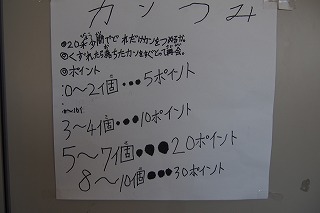 カンつみ
◎20秒間でどれだけカンをつめるか。
◎くずれたら落ちたカンをもどって再会。
◎ポイント
:0〜2個●●●5ポイント
3〜4個●●●10ポイント
5〜7個●●●20ポイント
8〜10個●●●30ポイント